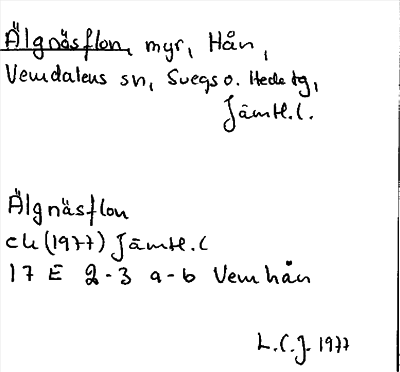 Älgnäsflon, myr, Hån,
Vemdalens sn, Svegs o. Hede tg,
Jämtl. l.
Älgnäsflon
ek (1977) Jämtl. l
17 E 2-3 a-b Vemhån
L.C.J. 1977